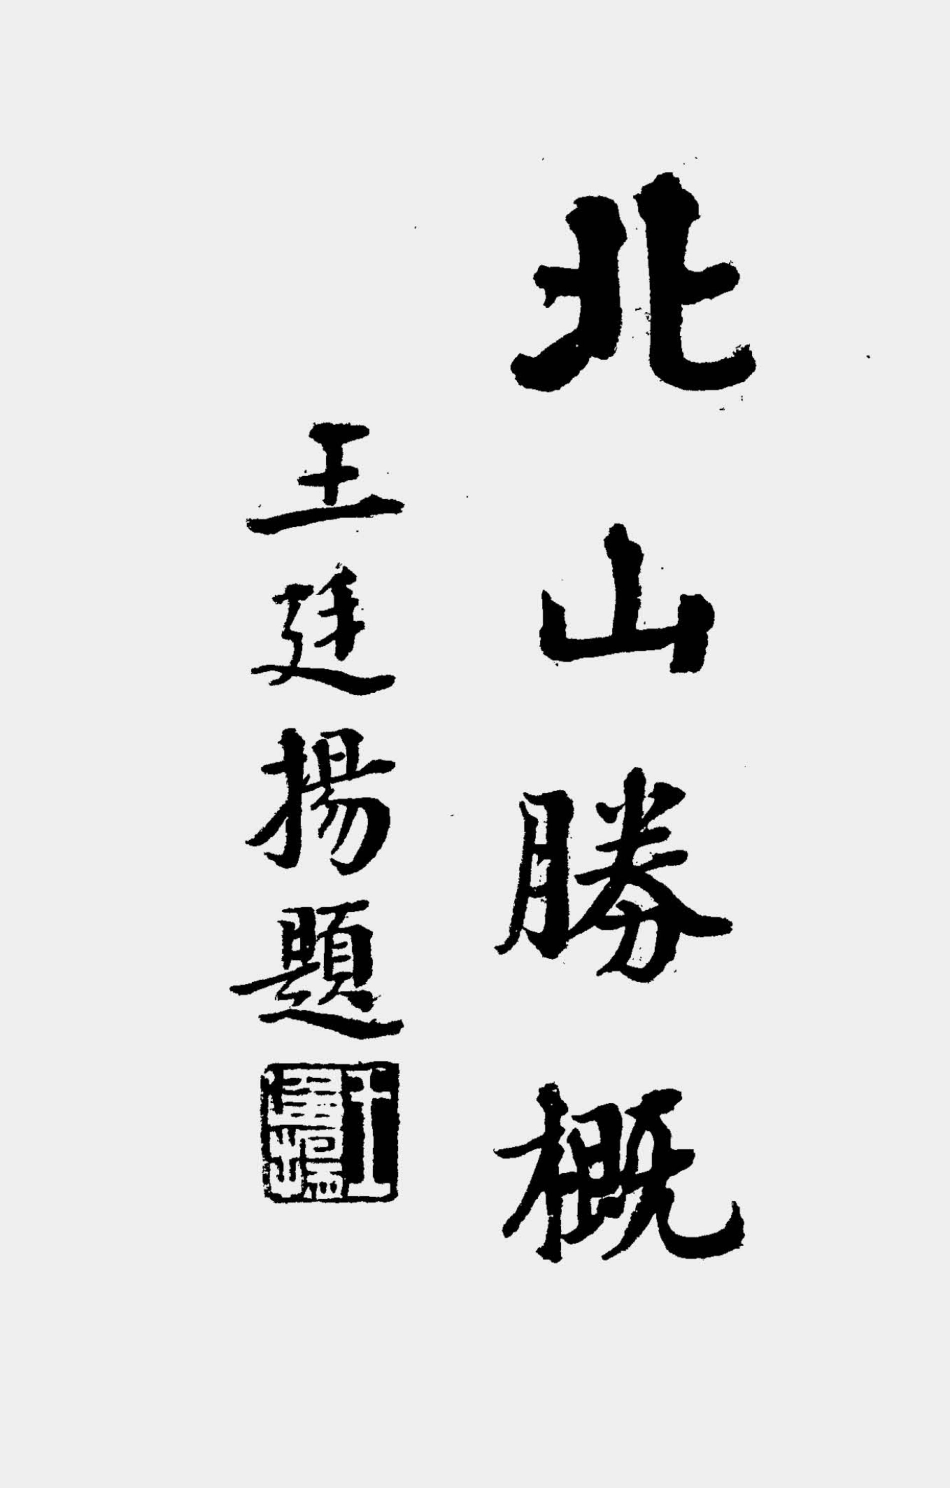 北山勝概
王廷揚題